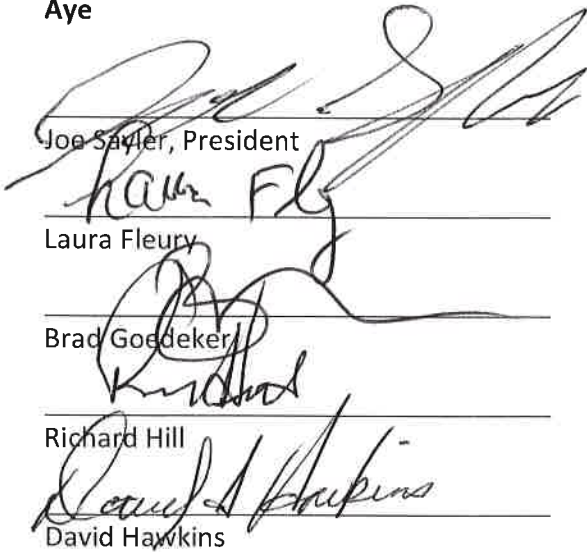 Aye
Joe Sayler, President
Laura Fleury
Brad Goedeker
Richard Hill
David A Hawkins
David Hawkins